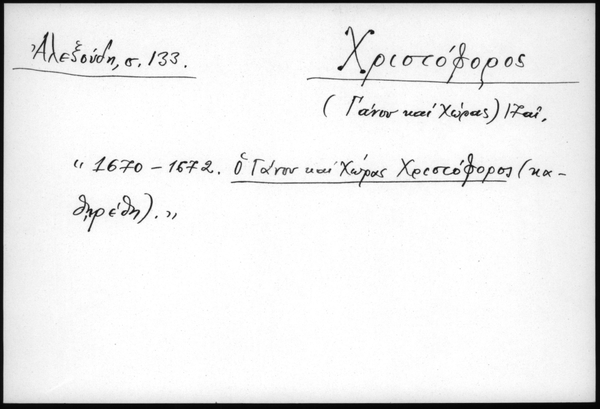 Ἀλεξούδη, σ. 133.
Χριστόφορος
(Γάνου καὶ Χώρας) 17 αἰ.
“1670 – 1672. ὁ Γάνου καὶ Χώρας Χριστόφορος (κα-
θῃρέθη).”